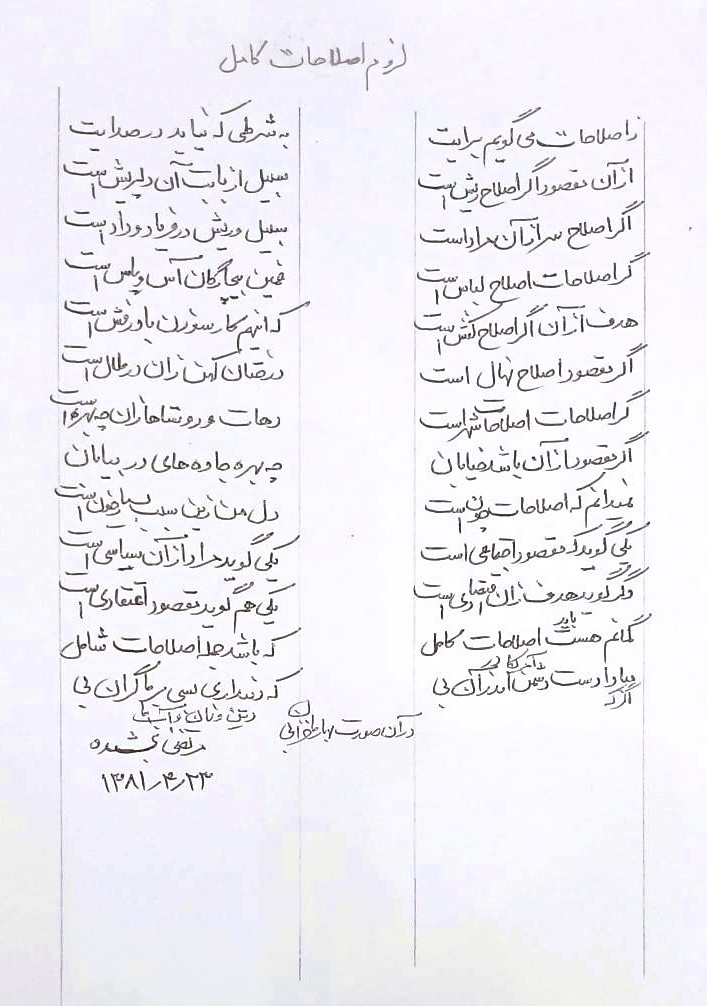 لزوم اصلاحات کامل
ز اصلاحات می گویم برایت به شرطی که نیاید در صدایت
از آن مقصود اگر اصلاح ریش است سبیل از بابت آن دلپریش است
اگر اصلاح سر از آن مراد است سبیل و ریش در فریاد و داد است
گر اصلاحات اصلاح لباس است همین بیچارگان آس و پاس است
هدف از آن اگر اصلاح کفش است که اینهم کار سوزن با درفش است
اگر مقصود اصلاح نهال است درختان کهن زان در ملال است
گر اصلاحات اصلاحات شهر است دهات و روستاها زان چه بهره است
اگر مقصود از آن باشد خیابان چه بهره جاده های در بیابان
نمیدانم که اصلاحات چون است دل من زین سبب بسیار خون است
یکی گوید که مقصود اجتماعی است یکی گوید مراد از آن سیاسی است
دگر گوید هدف زان اقتصادی است یکی هم گوید مقصود اعتقادی است
گمانم هست باید اصلاحات کامل که باشد جمله اصلاحات شامل
مبادا دست دشمن اندر آن بی که دینداری بسی بر ما گران بی
اگر که
در آن صورت بهار ما خزان بی
مرتضی
۱۳۸۱/۴/۲۳